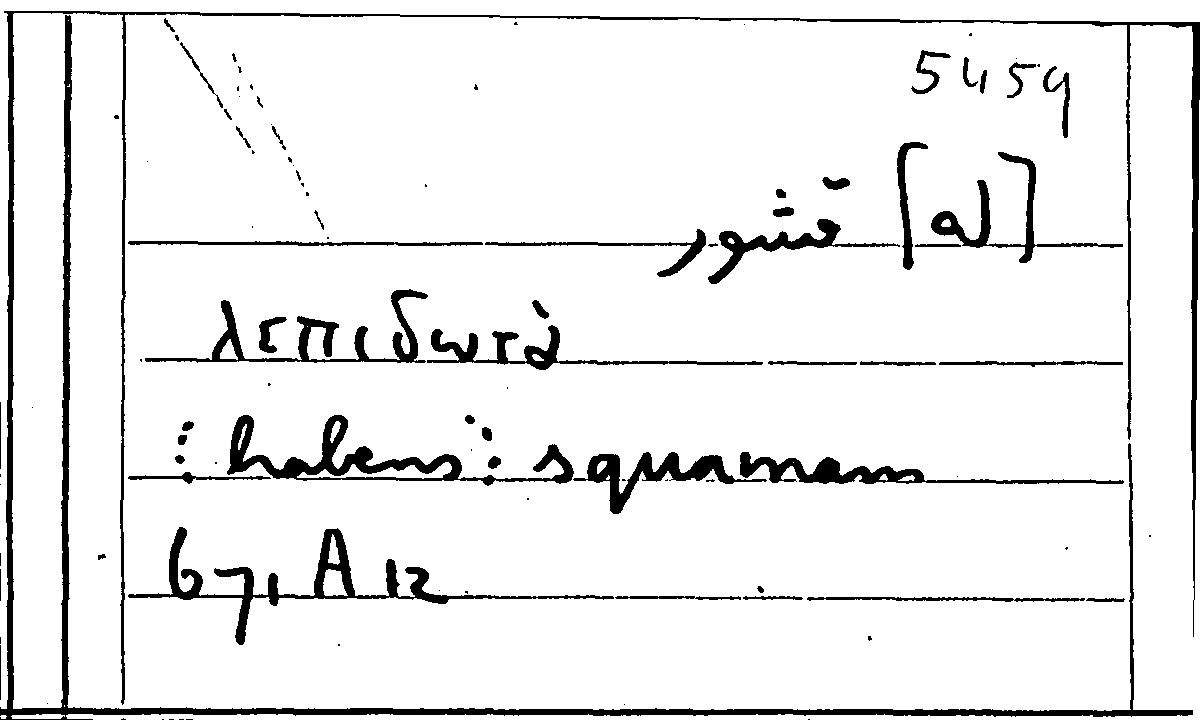 5459
[له] قشور
λεπιδωτὰ
⋮ habens ⋮ squamam
671 A 12